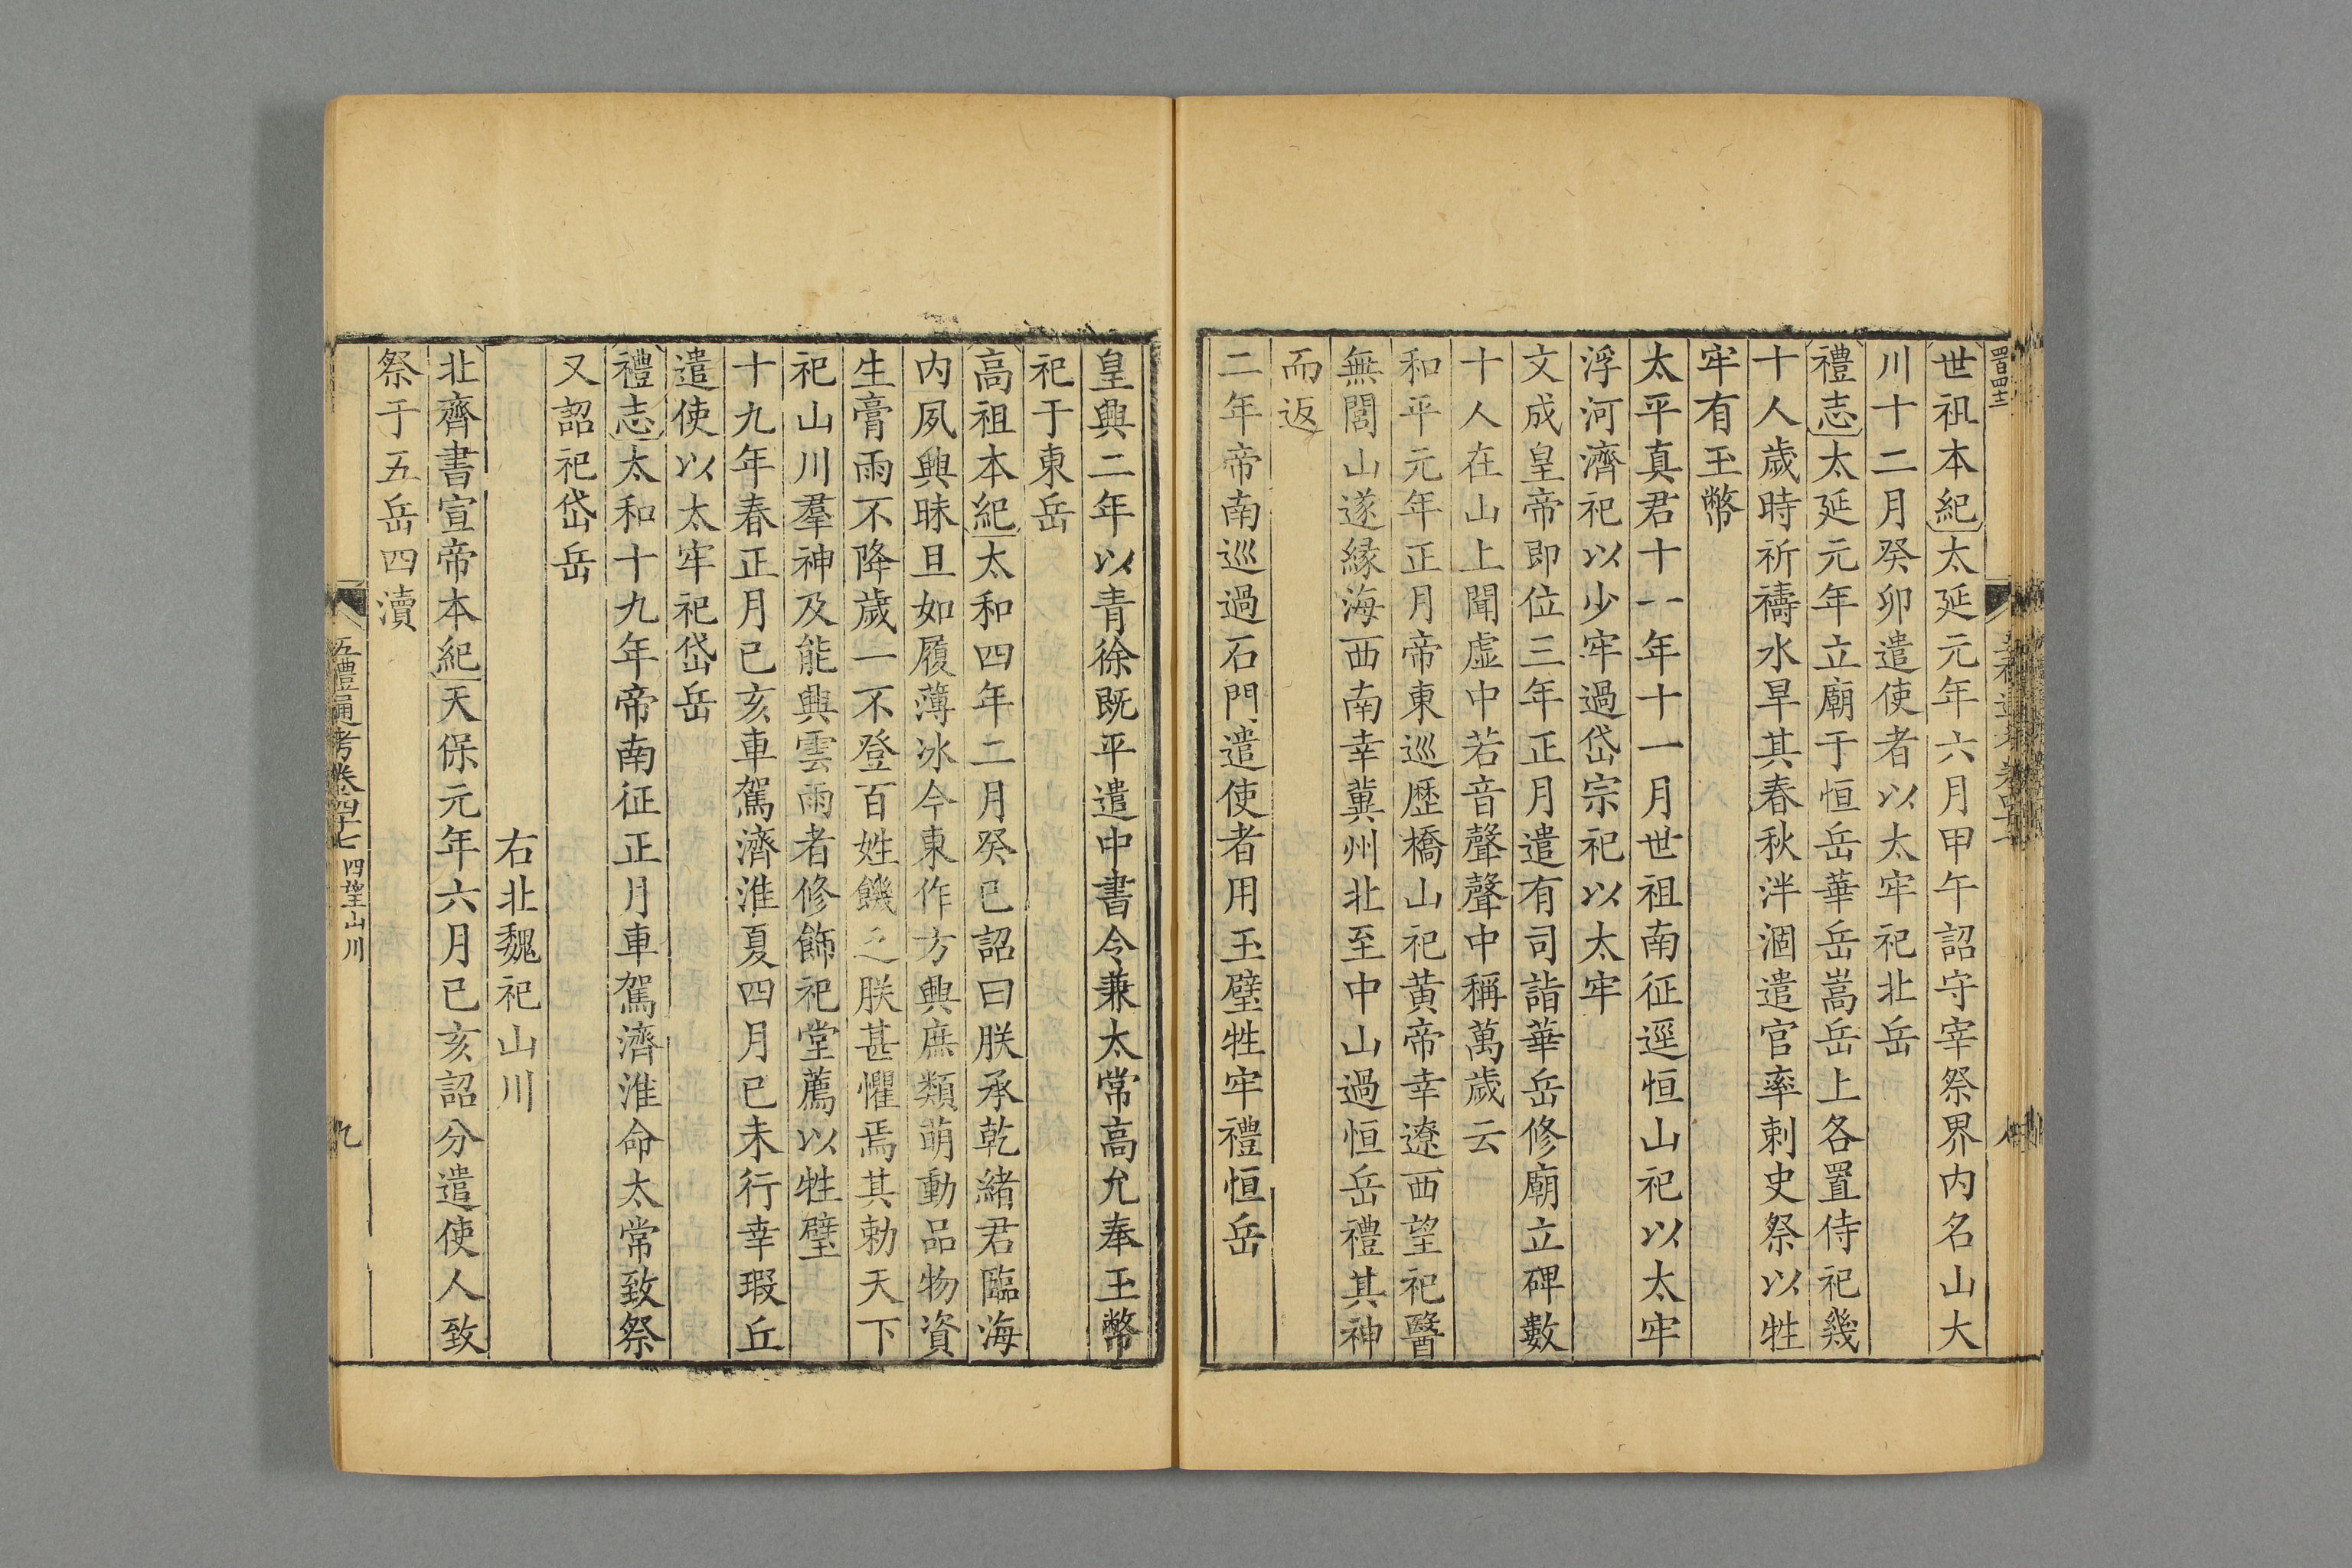 世祖本紀太延元年六月甲午詔守宰祭界内名山大
川十二月癸卯遣使者以太牢祀北岳
禮志太延元年立廟于恒岳華岳嵩岳上各置侍祀幾
十人歲時祈禱水旱其春秋泮涸遣官率刺史祭以牲
牢有玉幣
太平真君十一年十一月世祖南征逕恒山祀以太牢
浮河濟祀以少牢過岱宗祀以太牢
文成皇帝即位三年正月遣有司詣華岳修廟立碑數
十人在山上聞虛中若音聲聲中稱萬歲云
和平元年正月帝東巡歷橋山祀黃帝幸遼西望祀醫
無閭山遂緣海西南幸冀州北至中山過恒岳禮其神
而返
二年帝南巡過石門遣使者用玉璧牲牢禮恒岳
皇興二年以青徐既平遣中書令兼太常高允奉玉幣
祀于東岳
高祖本紀太和四年二月癸巳詔曰朕承乾緒君臨海
内夙興昧旦如履薄冰今東作方興庶類萌動品物資
生膏雨不降歲一不登百姓饑乏朕甚懼焉其勅天下
祀山川羣神及能興雲雨者修飾祀堂薦以牲璧
十九年春正月己亥車駕濟淮夏四月己未行幸瑕丘
遣使以太牢祀岱岳
禮志太和十九年帝南征正月車駕濟淮命太常致祭
又詔祀岱岳
右北魏祀山川
北齊書宣帝本紀天保元年六月己亥詔分遣使人致
祭于五岳四瀆
五禮通考卷四十七 四望山川 九